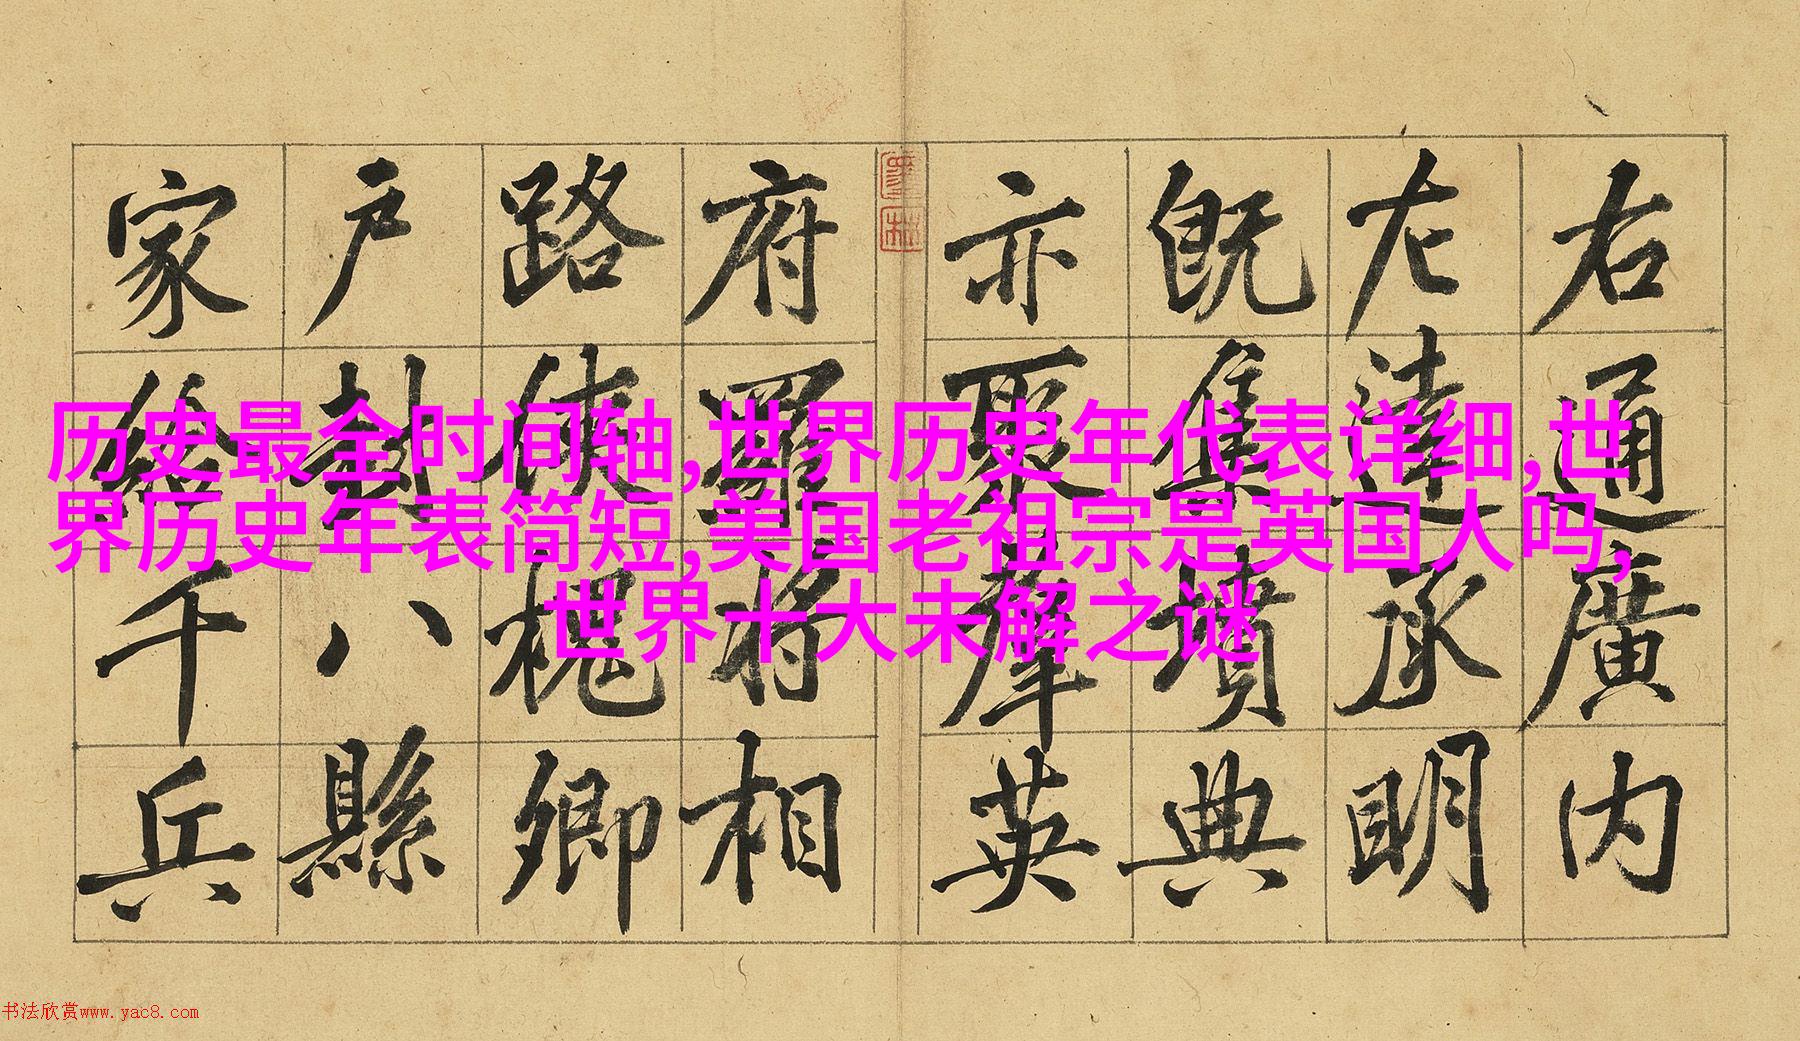 右通廣内
左達承明
既集墳典
亦聚羣英
府羅将相
路俠槐卿
户封八縣
家給千兵
历史最全时间轴,世界历史年代表详细,世
界历史年表简短,美国老祖宗是英国人吗,
世界十大未解之谜
书法欣赏www.yac8.com